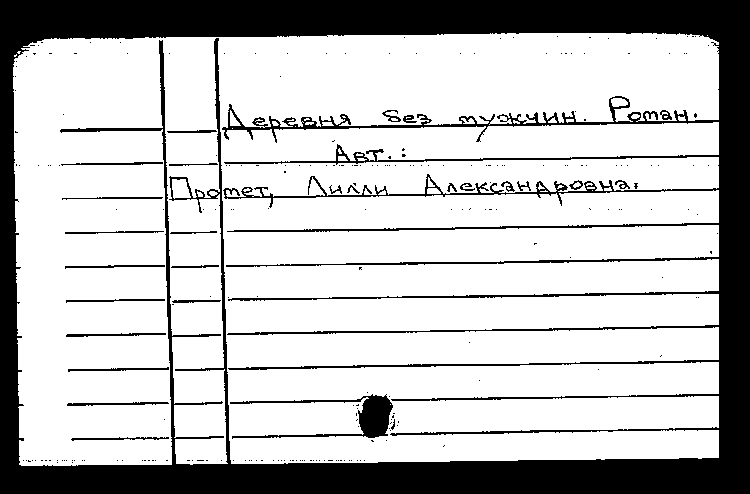 Деревня без мужчин. Роман.
Авт.:
Промет, Лилли Александровна.